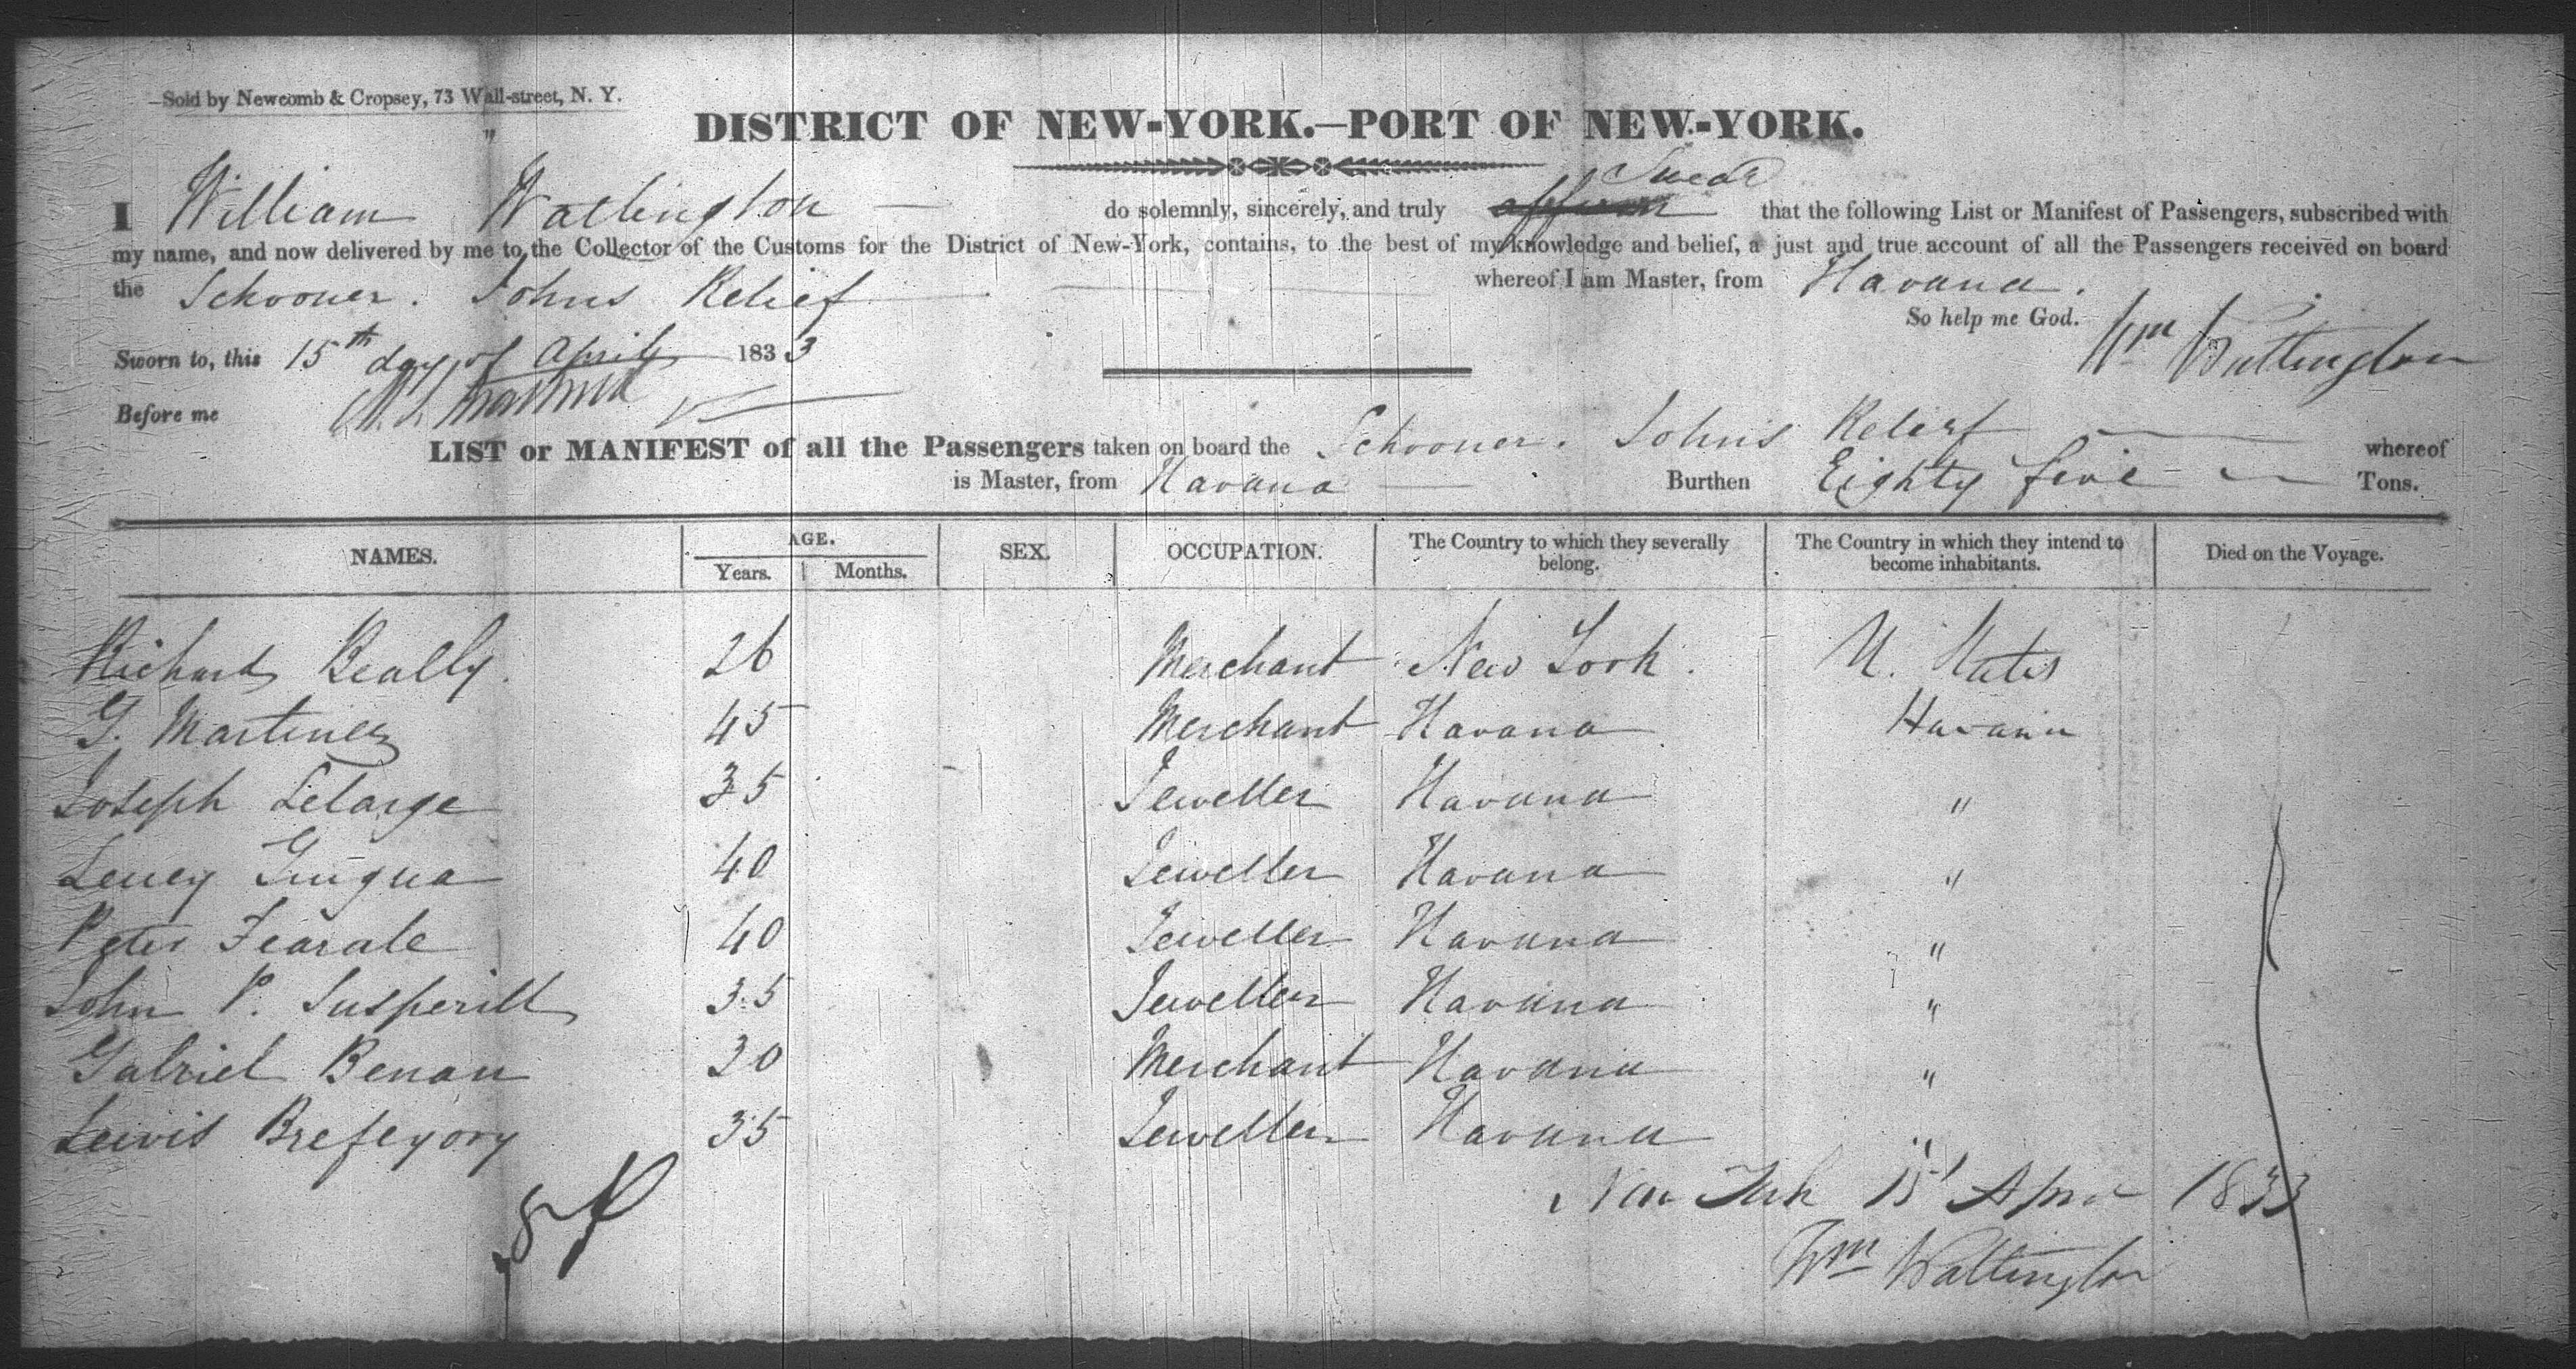 Sold by Newcomb & Cropsey, 73 Wall-street, N. Y.
DISTRICT OF NEW-YORK.—PORT OF NEW-YORK.
I William Watlington do solemnly, sincerely, and truly affirm Swear that the following List or Manifest of Passengers, subscribed with
my name, and now delivered by me to the Collector of the Customs for the District of New-York, contains, to the best of my knowledge and belief, a just and true account of all the Passengers received on board
the Schooner. Johns Relief whereof I am Master, from Havana.
So help me God. Wm Watlington
Sworn to, this 15th day of April 1833
Before me
LIST or MANIFEST of all the Passengers taken on board the Schooner. John's Relief whereof
is Master, from Havana Burthen Eighty five Tons.
NAMES. AGE. Years. Months. SEX. OCCUPATION. The Country to which they severally belong. The Country in which they intend to become inhabitants. Died on the Voyage.
Richard Beally. 26 Merchant New York. U. States
G. Martinez 45 Merchant Havana Havana
Joseph Lelarge 35 Jeweller Havana "
40 Jeweller Havana "
Peter 40 Jeweller Havana "
John P. 35 Jeweller Havana "
Gabriel Benan Merchant Havana "
Lewis 35 Jeweller Havana "
8
New York 15 April 1833
Wm Watlington